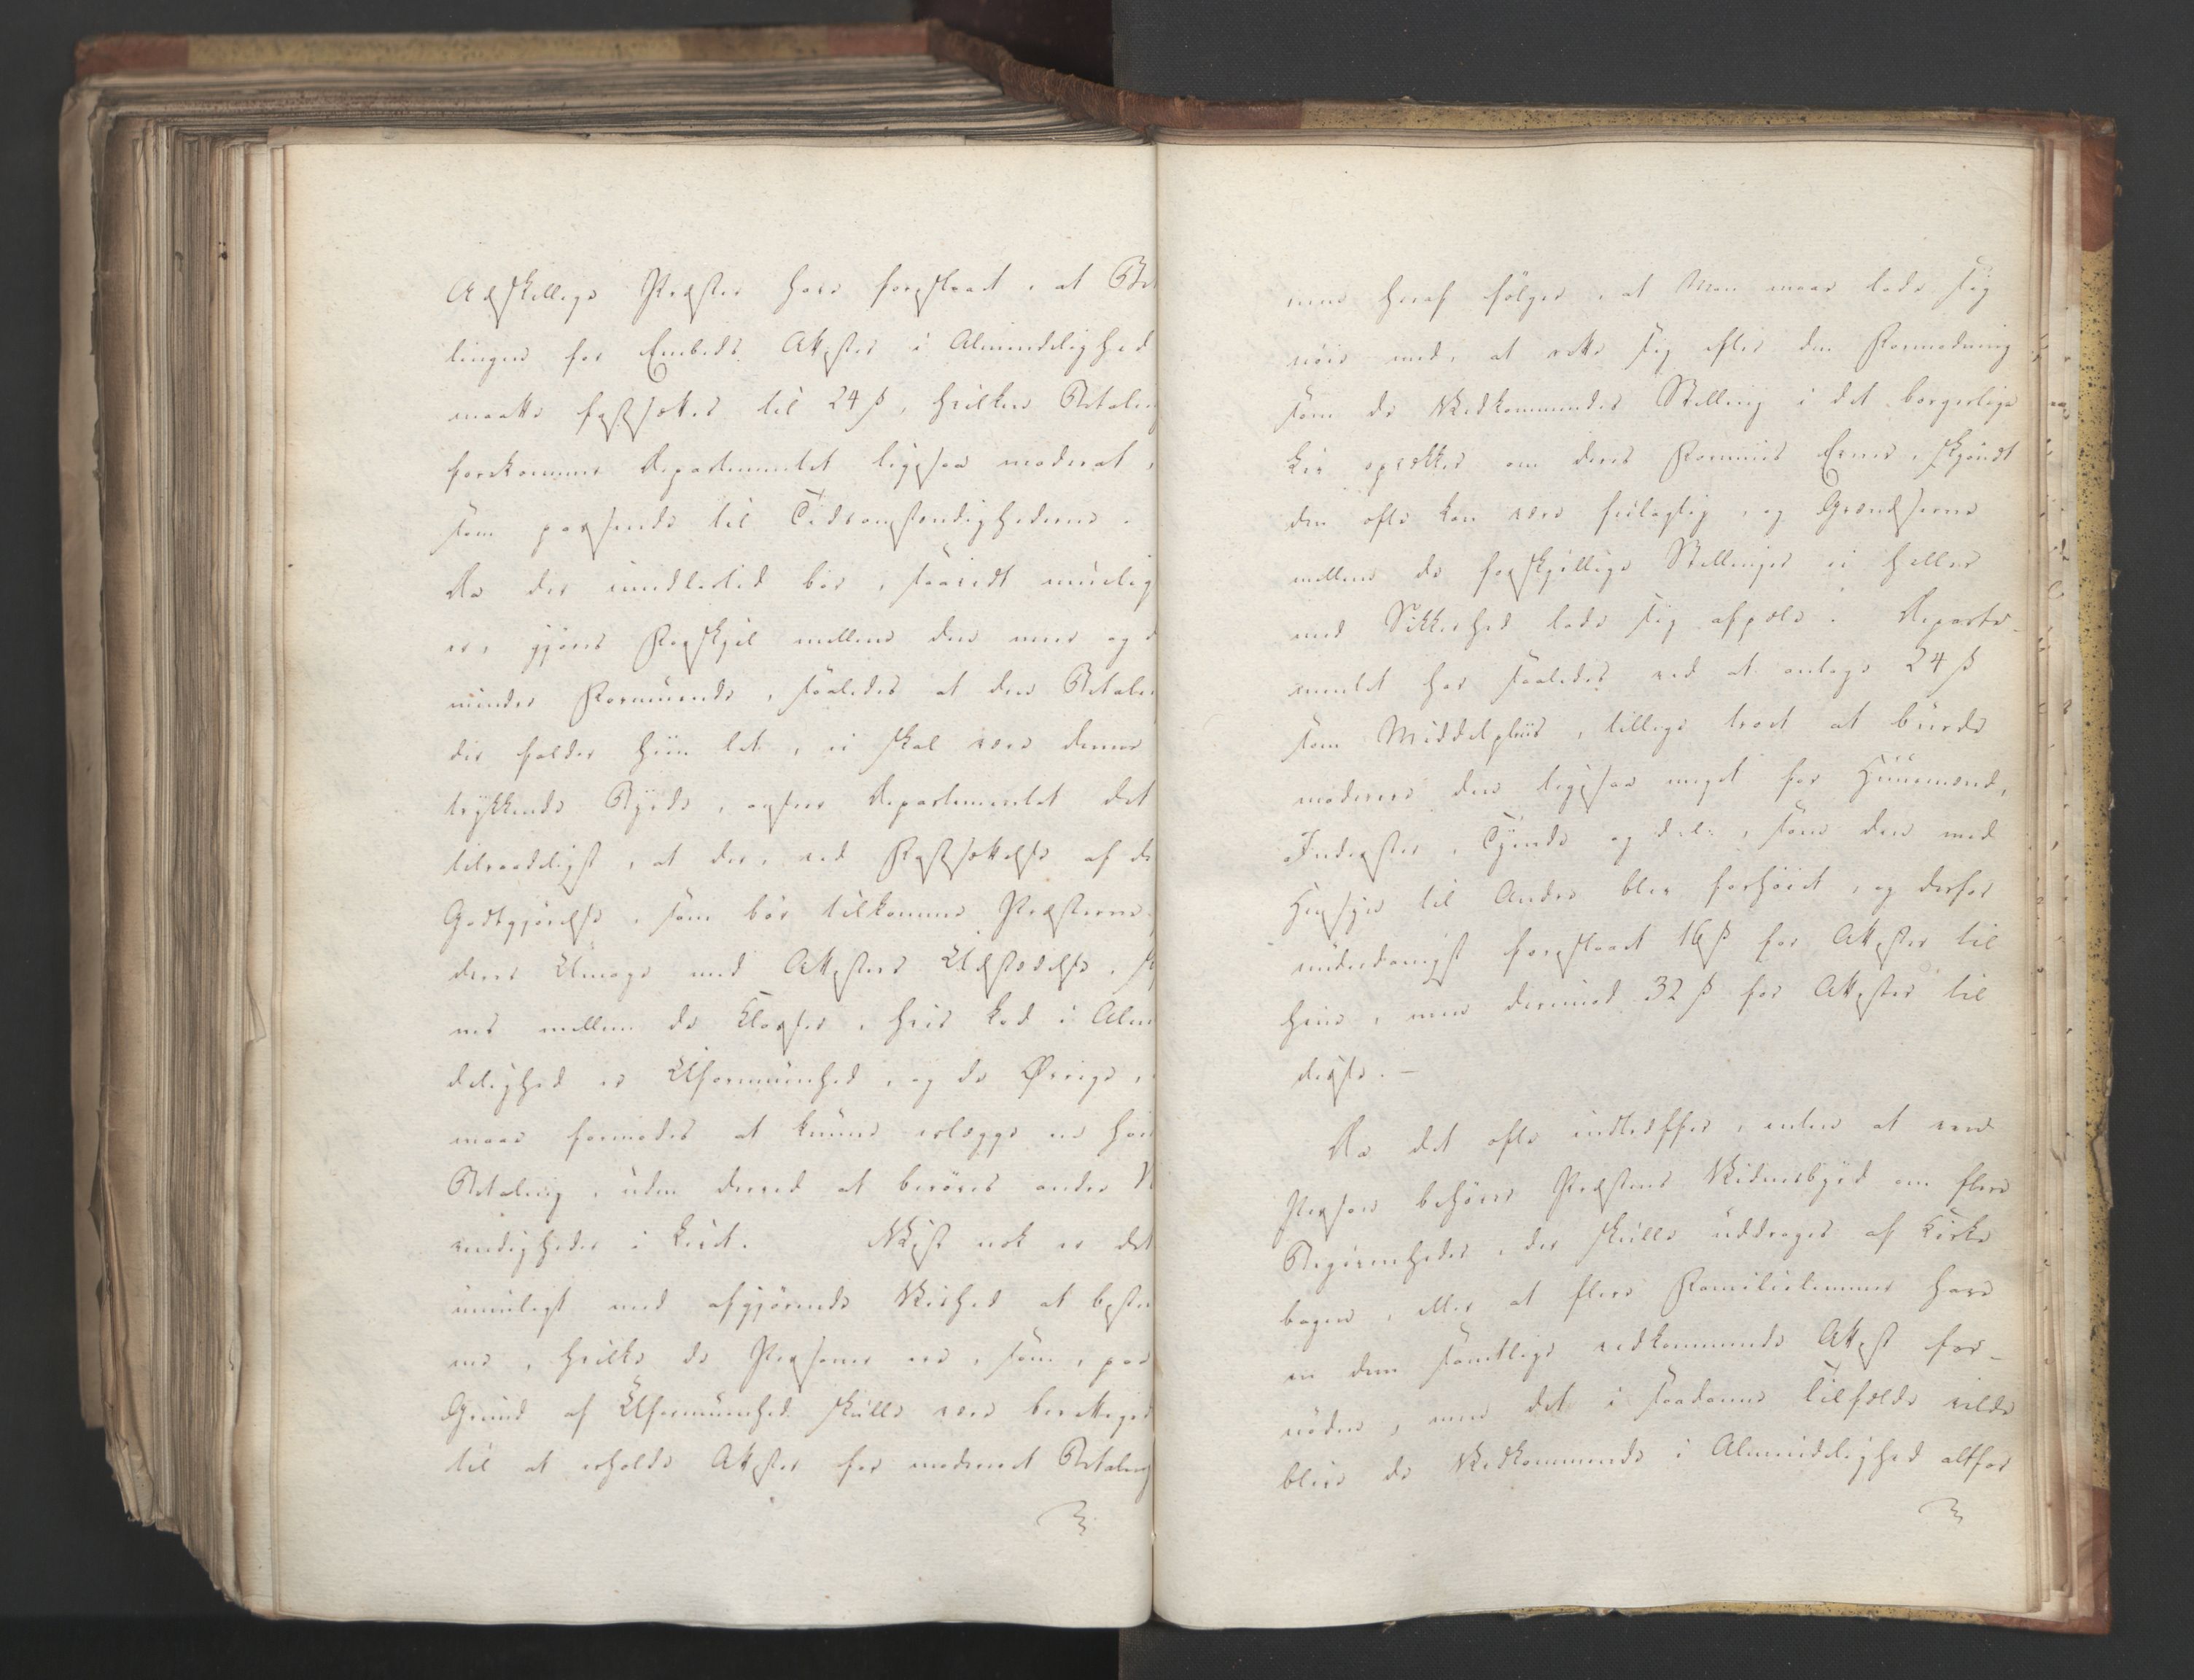 Adskillige Præster have foreslaaet, at Be
lingen for Embeds Attester i Almindelighed
maatte fastsættes til 24 ß, hvilken Betalin
forekommer Departementet ligesaa moderat,
som passende til Tidsomstændighederne.
Da der imidlertid bør, saavidt muelig
er, gjøres Forskjel mellem den mere og
mindre Formuende, saaledes at den Betalin
der falder hiin let, ei skal være denne
trykkende Byrde, anseer Departementet det
tilraadeligst, at der, ved Fastsættelse af de
Godtgjørelse, som bør tilkomme Præsterne
deres Umage med Attesters Udstædelse, sk
nes mellem de Classer, hvis Lod i Almi
delighed er Uformuenhed, og de Øvrige,
maae formodes at kunne erlægge en høi
Betaling, uden derved at berøves andre N
vendigheder i Livet. Vist nok er det
umueligt med afgjørende Vished at bestem
me, hvilke de Personer ere, som, paa
Grund af Uformuenhed skulle være berettiged
til at erholde Attester for modereret Betaling
men heraf følger, at Man maae lade sig
nøie med, at rette sig efter den Formodning
som de Vedkommendes Stilling i det borgerlige
Liv opvækker om deres Formues Evner, skjøndt
den ofte kan være feilagtig, og Grændserne
mellem de forskjellige Stillinger ei heller
med Sikkerhed lade sig afpæle. Departe-
mentet har saaledes ved at antage 24 ß
som Middelpriis, tillige troet at burde
moderere den ligesaa meget for Huusmænd,
Inderster, Tyende og d: l:, som den med
Hensyn til Andre blev forhøiet, og derfor
underdanigst foreslaaet 16 ß for Attester til
hine, men derimod 32 ß for Attester til
disse. -
Da det ofte indtreffer, enten at een
Person behøver Præstens Vidnesbyrd om flere
Begivenheder, der skulle uddrages af Kirke
bogen, eller at flere Familielemmer have
en dem samtlige vedkommende Attest for-
nøden, men det i saadanne Tilfælde vilde
blive de Vedkommende i Almindelighed altfor